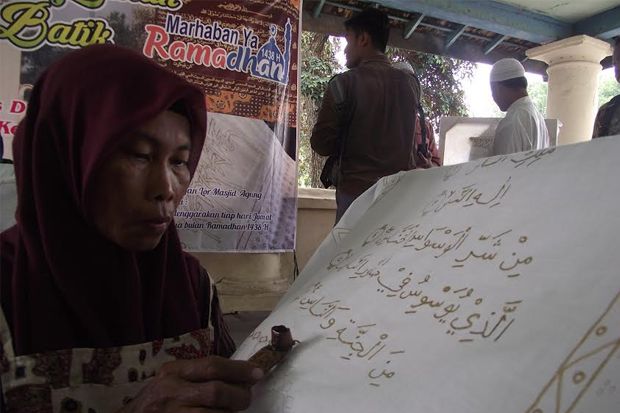 Batik
Marhaban Ya
Ramadhan
1438 H
Lor Masjid Agung
tiap hari Jumat
bulan Ramadhan 1438 H
إِلٰهِ النَّاسِ
مِنْ شَرِّ الْوَسْوَاسِ الْخَنَّاسِ
الَّذِيْ يُوَسْوِسُ فِيْ صُدُوْرِ النَّاسِ
مِنَ الْجِنَّةِ وَالنَّاسِ